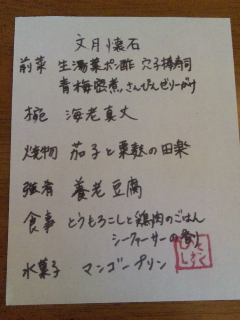 文月懐石
前菜 生湯葉ポン酢 穴子棒寿司
青梅蜜煮、さんぴんぜりーがけ
椀 海老真丈
焼物 茄子と粟麩の田楽
強肴 養老豆腐
食事 とうもろこしと鶏肉のごはん
シークァーサーの香り
水菓子 マンゴープリン